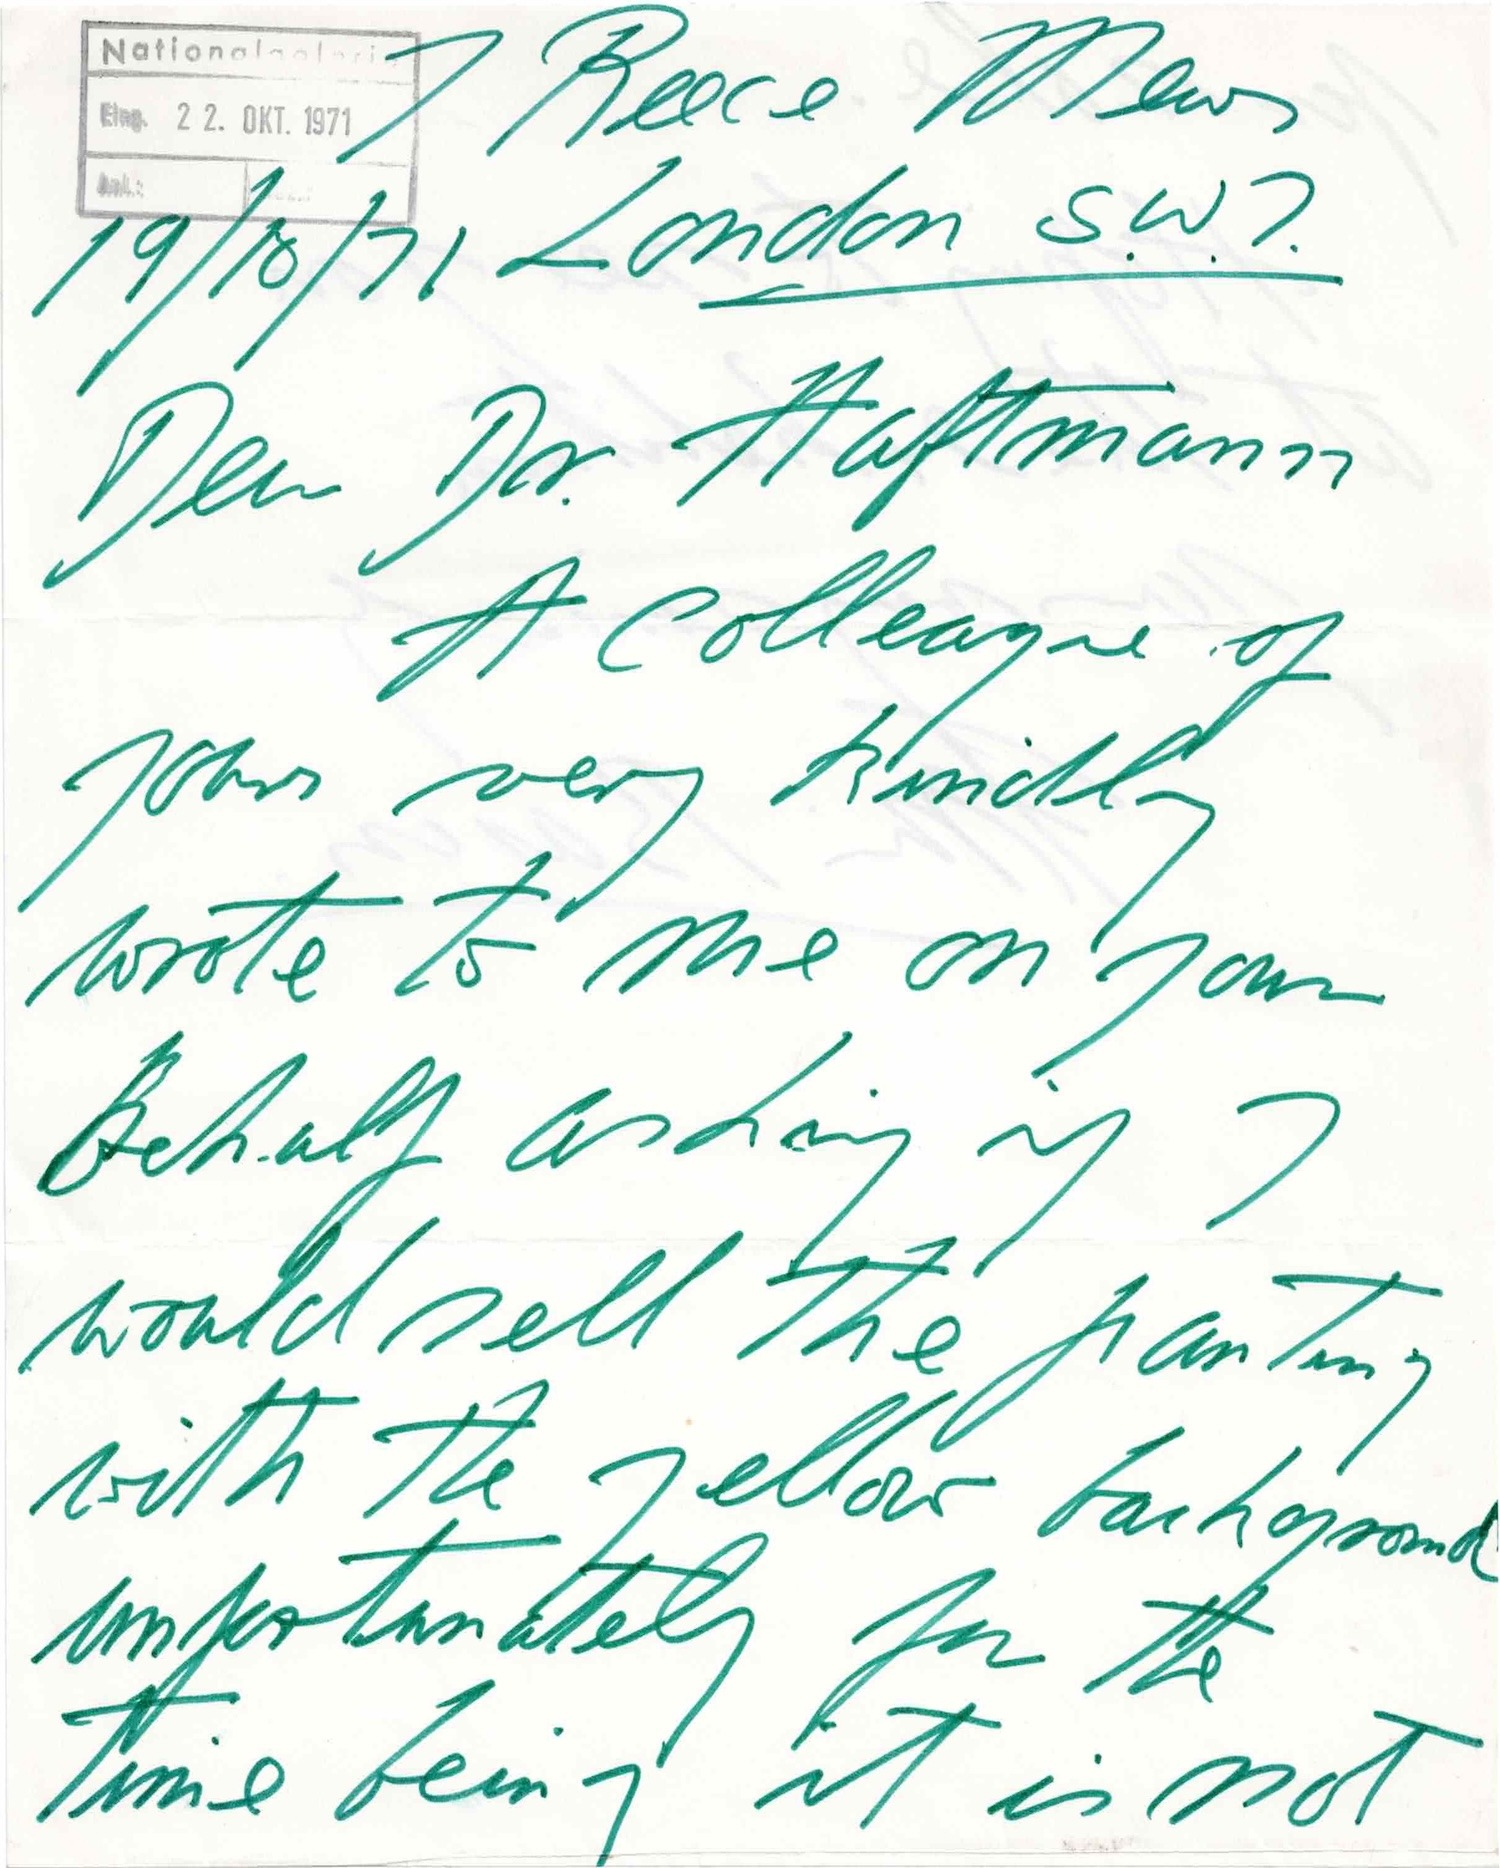 Nationalgalerie
Eing. 22. OKT. 1971
Anl.:
7 Reece Mews
London S.W.7.
19/10/71
Dear Dr. Haftmann
A Colleague of
yours very kindly
wrote to me on your
behalf asking if I
would sell the painting
with the yellow background
unfortunately for the
time being it is not